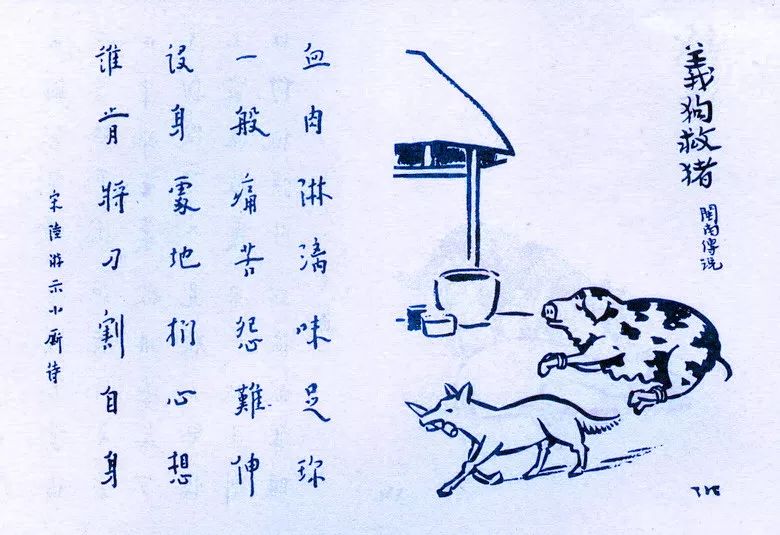 義狗救猪
閩南傳说
血肉淋漓味足珍
一般痛苦怨難伸
设身處地捫心想
誰肯将刀割自身
宋陸游示小厮诗